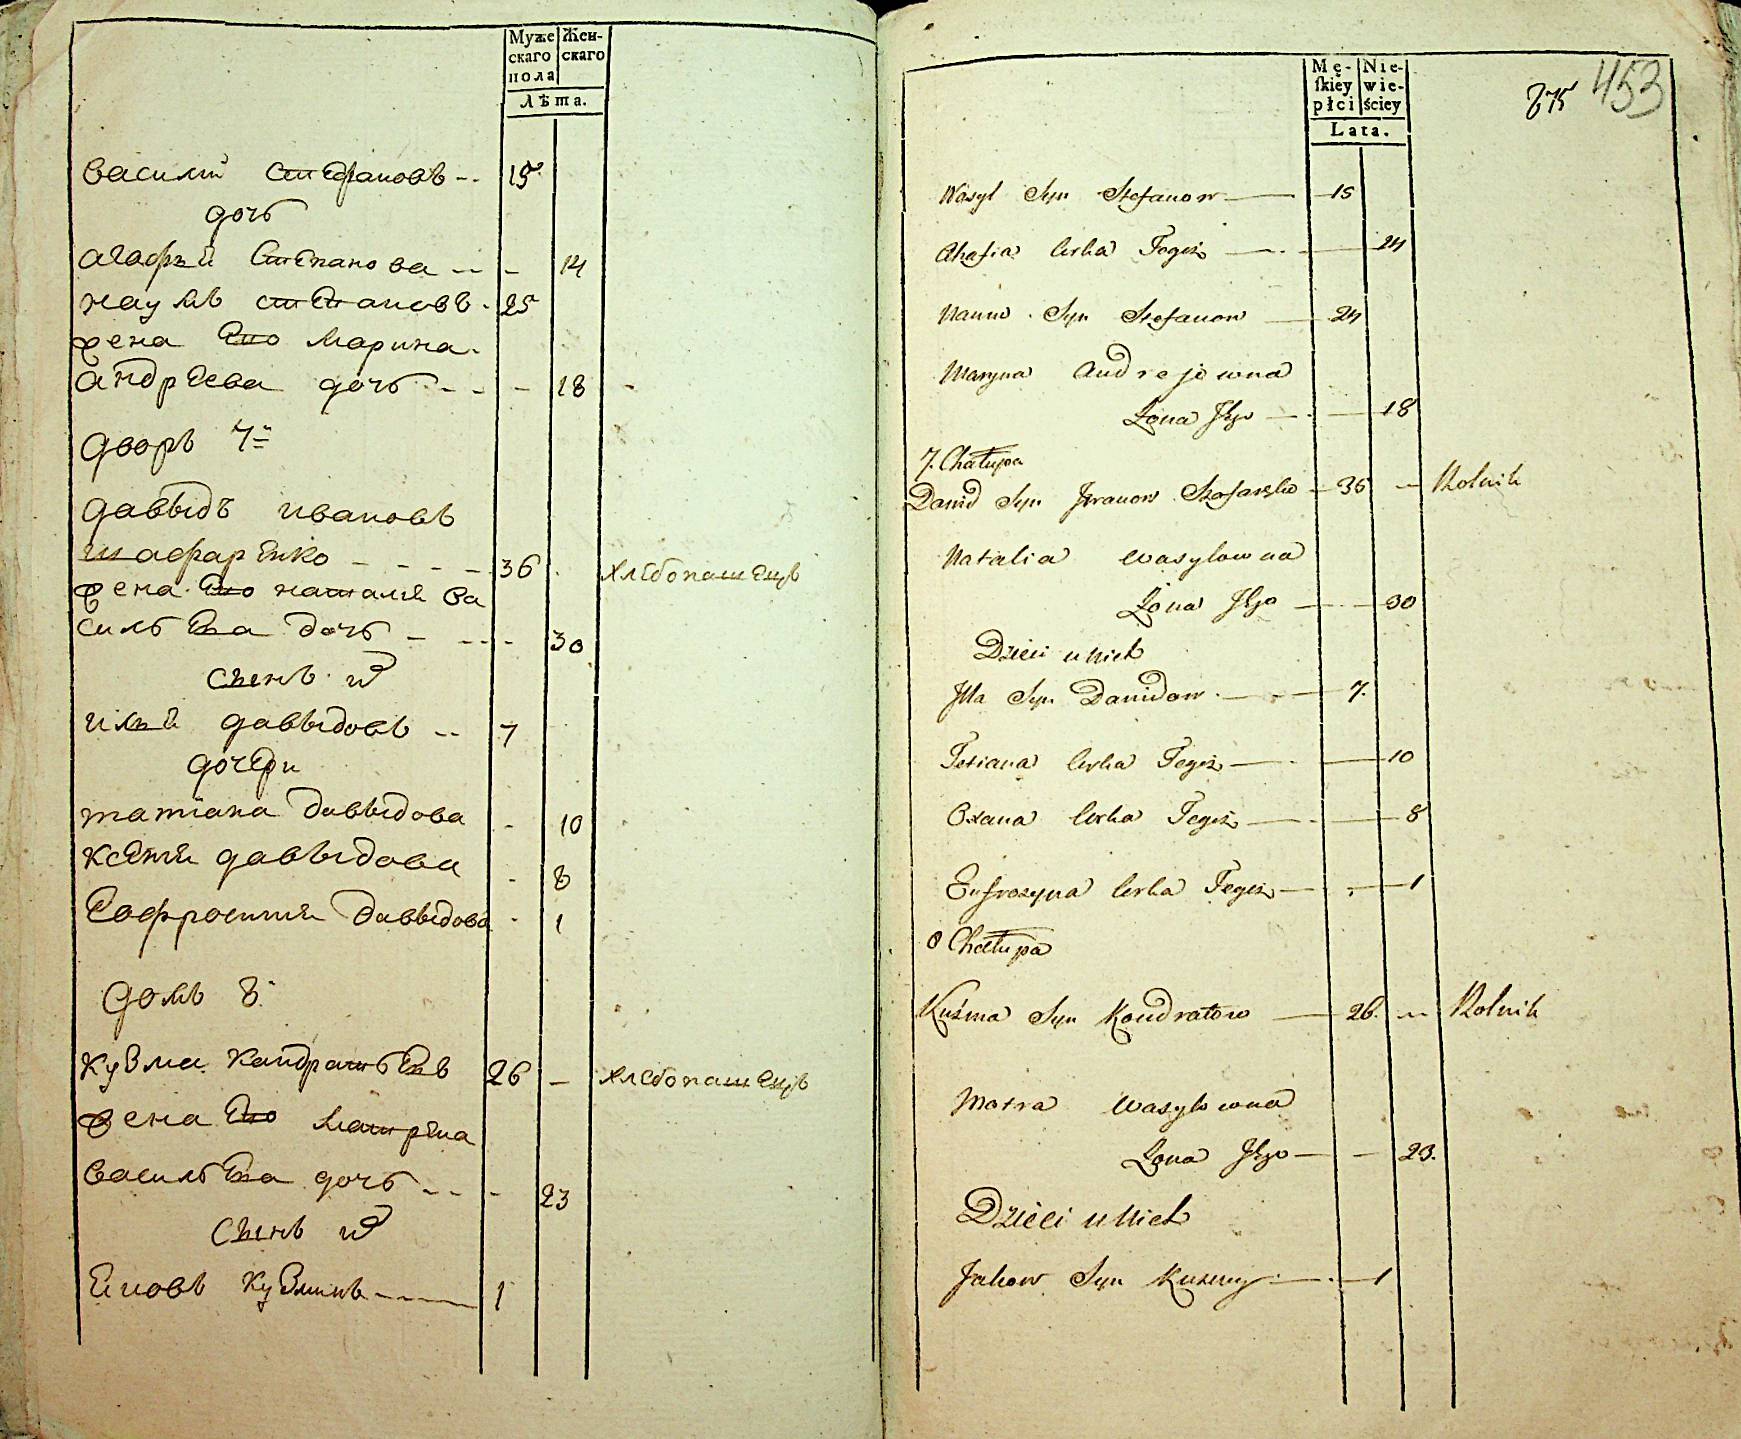 Муже Жен-
скаго скаго
пола
Лѣта.
василий стефановъ -- 15
дочь
агафъя степанова -- - 14
наумъ степановъ - 25
жена ево марина
андреева дочь - - - 18
дворъ 7й
давыдъ ивановъ
шафаренко - - - - 36 хлебопашецъ
жена ево наталія ва
сильева дочь - -- - 30
сынъ их
илья давыдовъ -- 7
дочери
татіана давыдова - 10
ксенія давыдова - 8
Еофросинія давыдова - 1
домъ 8й
кузма кандратьевъ 26 - хлебопашецъ
жена ево матрена
васильева дочь -- - 23
сынъ их
яковъ кузминъ ---- 1
Mę- Nie-
ſkiey wie-
płci ściey
Lata.
875 453
Wasyl Syn Stefanow — 15
Ahafia Corka Tegoż — 14
Naum Syn Stefanow — 24
Maryna Andrejowna
Żona Jego — 18
7. Chałupa
Dawid Syn Jwanow Szafarẽko — 36 — Rolnik
Natalia Wasylowna
Żona Jego — 30
Dzieci u Nich
Jlla Syn Dawidow — 7.
Tetiana Corka Tegoż — 10
Oxana Corka Tegoż — 8
Eufrozyna Corka Tegoż — 1
8 Chałupa
Kuźma Syn Kondratow — 26. — Rolnik
Motra Wasylowna
Żona Jego — 23.
Dzieci u Nich
Jakow Syn Kuzmy — 1